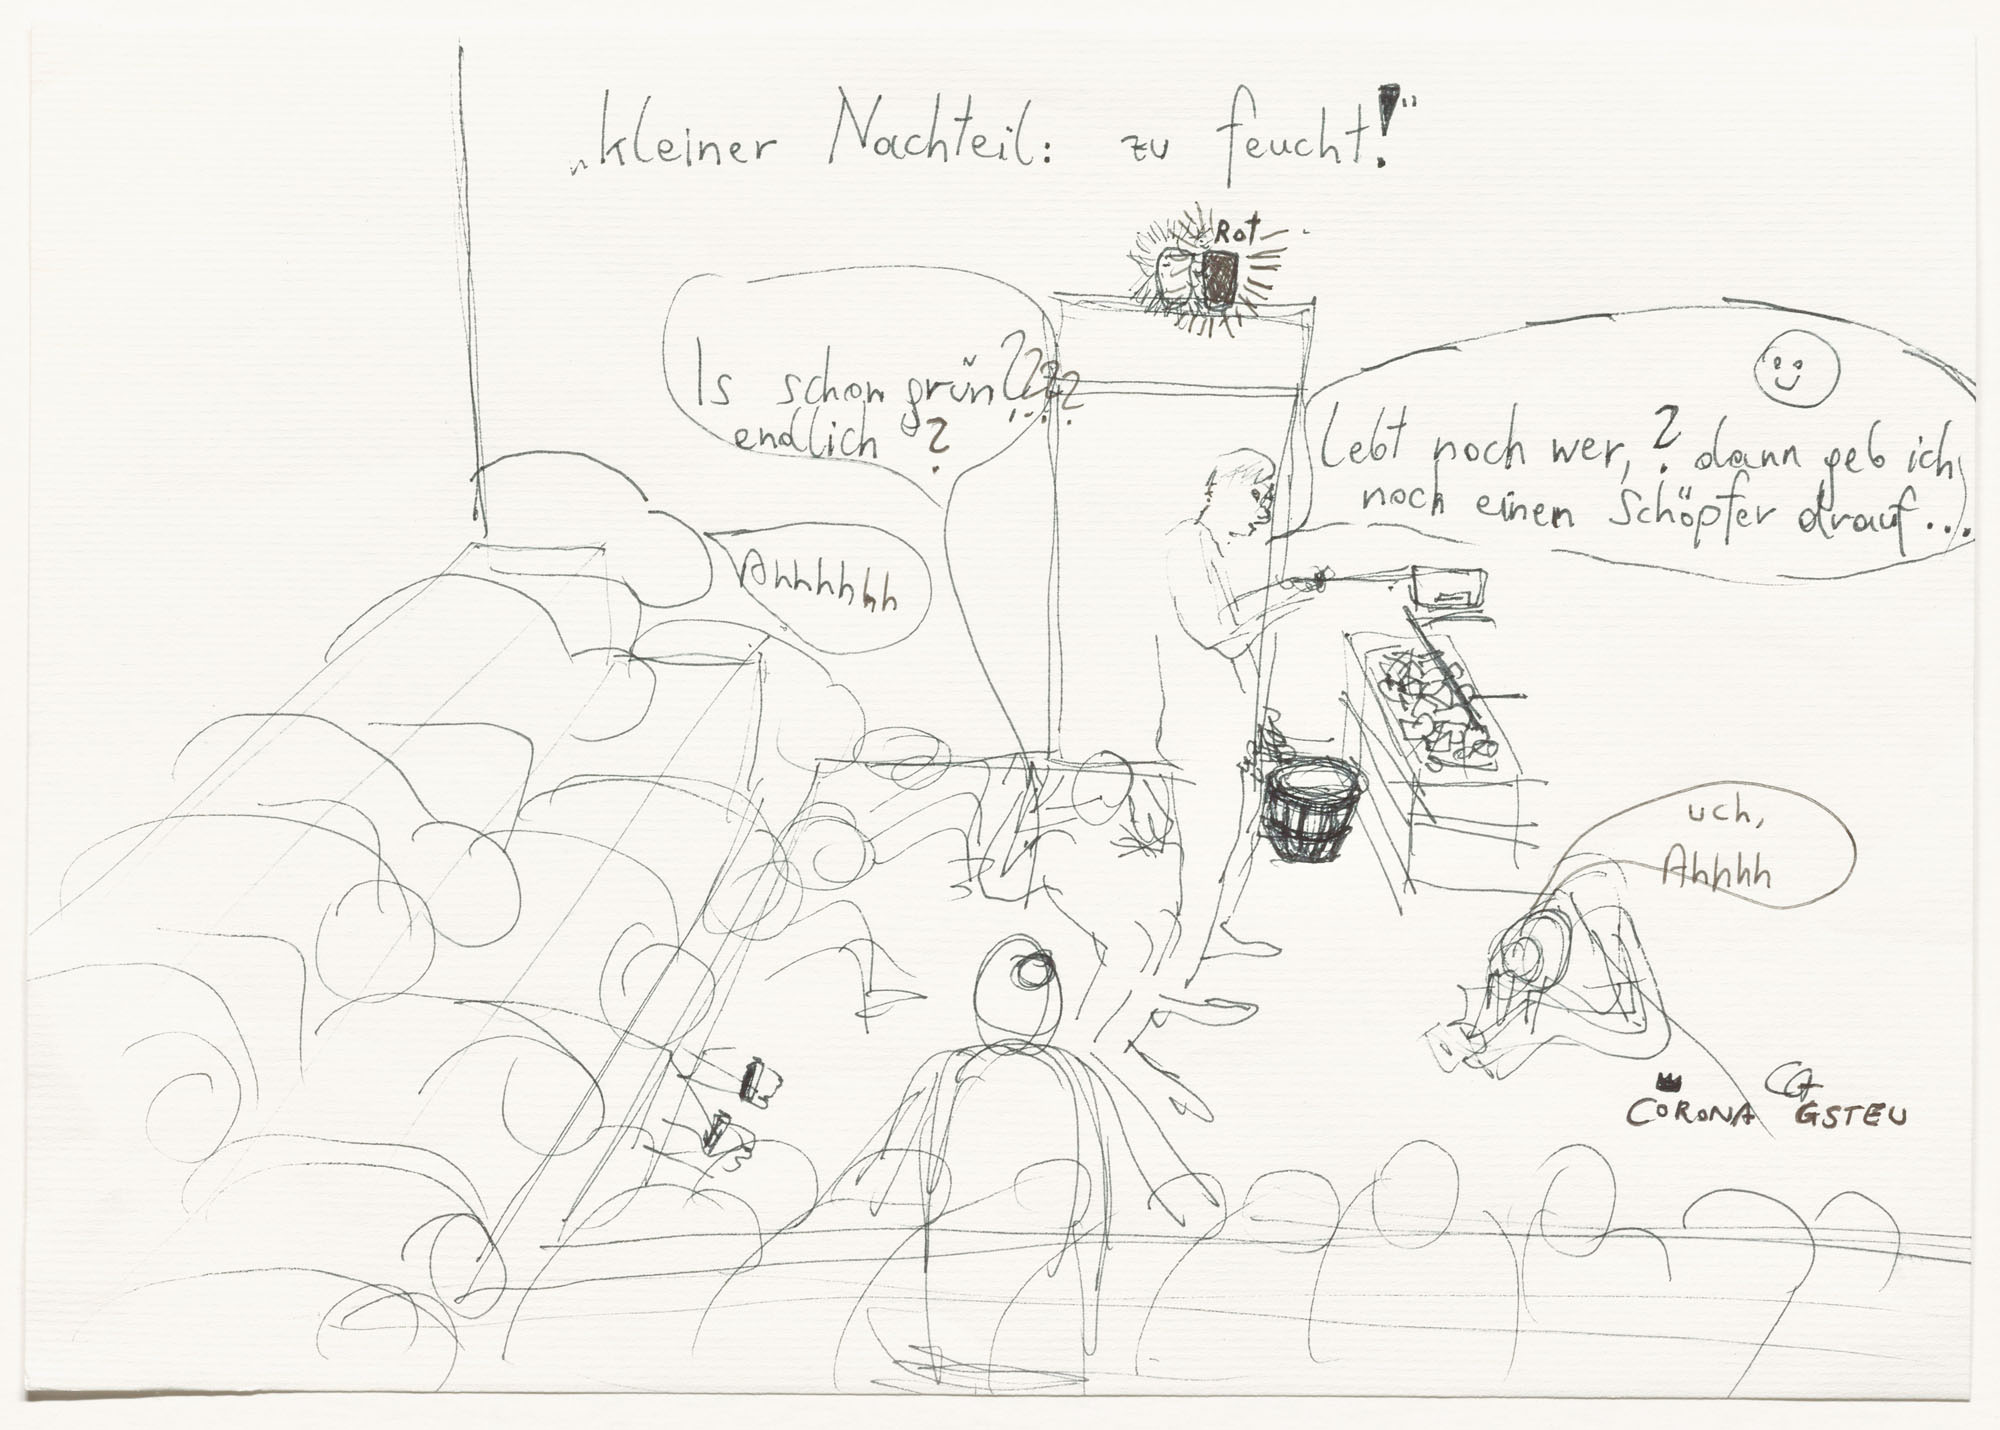 „kleiner Nachteil: zu feucht!"
Rot
Is schon grün????
endlich ?
Lebt noch wer,? dann geb ich
noch einen Schöpfer drauf...
Ahhhhhh
uch,
Ahhhh
CORONA GSTEU